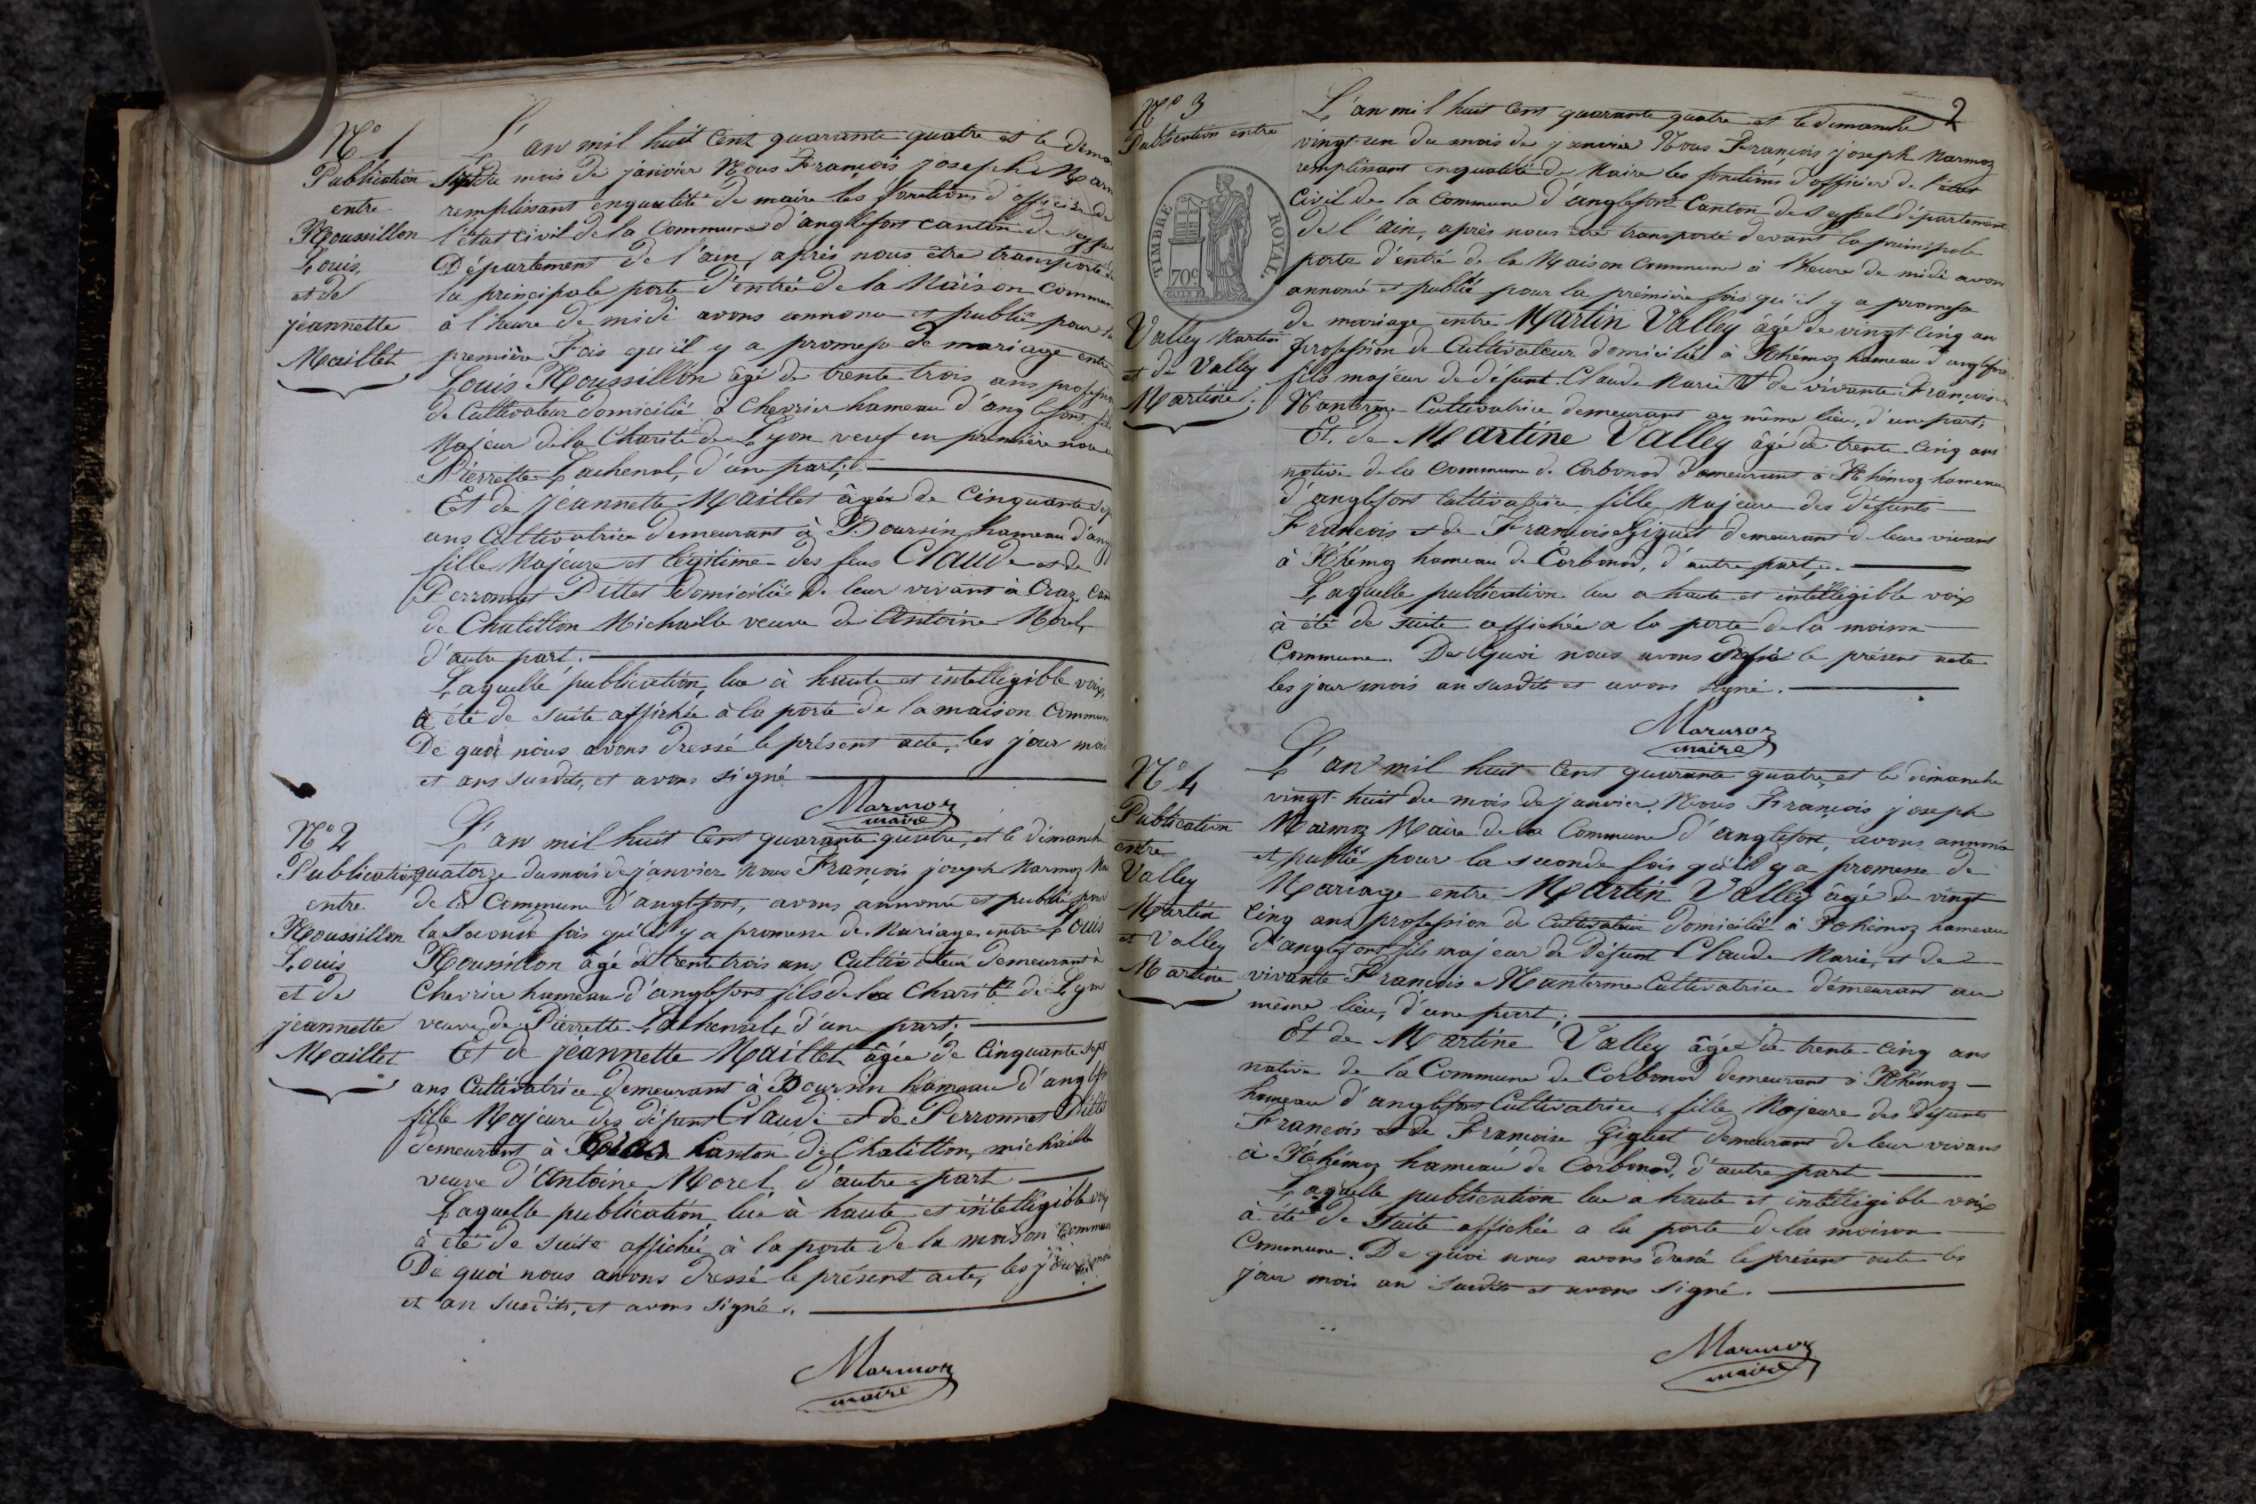 N° 1
Publication
entre
Roussillon
Louis,
et de
jeannette
Maillet
L'an mil huit Cent quarante quatre et le
du mois de janvier Nous François joseph
remplissant enqualité de maire les fonctions d'officier de
l'état Civil de la Commune d'anglefort canton de
Département de l'ain, après nous être transporté
la principale porte d'entrée de la Maison
à l'heure de midi avons annoncé et publié pour la
première Fois qu'il y a promesse de mariage entre
Louis Roussillon âgé de trente trois ans
de Cultivateur domicilié à Chevrier hameau d'anglefort
Majeur de la Charité de Lyon veuf en première
Pierrette Lachenal, d'une part;
Et de Jeannette Maillet âgée de Cinquante
ans Cultivatrice demeurant à Boursin hameau
fille Majeure et légitime des feus Claude et de
Perronnet Pillet Domiciliés de leur vivant à Craz
de Chatillon Michaille veuve de Antoine Morel,
d'autre part.
Laquelle publication, lue à haute et intelligible voix
a été de suite affichée à la porte de la maison
De quoi nous avons dressé le présent acte, les jour
et ans susdits, et avons signé
Marmoz
maire
N° 2
Publication
entre
Roussillon
Louis
et de
jeannette
Maillet
L'an mil huit Cent quarante quatre, et le dimanche
quatorze du mois de janvier Nous François joseph Marmoz
de la Commune d'anglefort, avons annoncé et publié pour
la Seconde fois qu'il y a promesse de Mariage entre Louis
Roussillon âgé de trente trois ans Cultivateur demeurant à
Chevrier hameau d'anglefort fils de la Charité de Lyon
veuve de Pierrette Lachenal, d'une part;
Et de jeannette Maillet âgée de Cinquante sept
ans Cultivatrice demeurant à Boursin hameau
fille Majeure des défunt Claude et de Perronnet Pillet
demeurant à Canton de Chatillon michaille
veuve d'Antoine Morel d'autre part
Laquelle publication, lue à haute et intelligible
à été de suite affichée à la porte de la maison
De quoi nous avons dressé le présent acte, les jour
et an susdits, et avons signé.
Marmoz
maire
2
N° 3
Publication entre
TIMBRE ROYAL.
70c
Valley Martin
et de Valley
Martine.
L'an mil huit Cent quarante quatre et le dimanche
vingt-un du mois de janvier Nous François joseph Marmoz
remplissant enqualité de Maire les fonctions d'officier de l'état
Civil de la Commune d'anglefort Canton de Seyssel département
de l'ain, après nous être transporté devant la principale
porte d'entré de la Maison Commune à l'heure de midi avons
annoncé et publié pour la première fois qu'il y a promesse
de mariage entre Martin Valley âgé de vingt Cinq an
profession de Cultivateur domicilié à Rhémoz hameau d'anglefort
fils majeur de défunt Claude Marie et de vivante Françoise
Manterme Cultivatrice demeurant au même lieu, d'une part;
Et de Martine Valley âgée de trente Cinq ans
native de la Commune de Corbonod demeurant à Rhémoz hameau
d'anglefort Cultivatrice fille Majeure des défunts
François et de Françoise Giguet demeurant de leur vivant
à Rhémoz hameau de Corbonod, d'autre part,
Laquelle publication lue a haute et intelligible voix
à été de suite affichée a la porte de la maison
Commune. De Quoi nous avons le présent acte
les jour mois an susdits et avons signé.
Marmoz
maire
N° 4
Publication
entre
Valley
Martin
et Valley
Martine
L'an mil huit Cent quarante quatre, et le dimanche
vingt-huit du mois de janvier, Nous François joseph
Marmoz Maire de la Commune d'anglefort, avons annoncé
et publié pour la seconde fois qu'il y a promesse de
Mariage entre Martin Valley âgé de vingt
Cinq ans profession de Cultivateur domicilié à Rohémoz hameau
d'anglefort fils majeur de Défunt Claude Marie, et de
vivante François Manterme Cultivatrice demeurant au
même lieu, d'une part;
Et de Martine Valley âgée de trente-Cinq ans
native de la Commune de Corbonod demeurant à Rhémoz
hameau d'anglefort Cultivatrice, fille Majeure des Défunts
François et de Francoise Giguet demeurant de leur vivans
à Rhémoz hameau de Corbonod, d'autre part
Laquelle publication lue a haute et intelligible voix
à été de suite affichée a la porte de la maison
Commune. De quoi nous avons dressé le présent acte les
jour mois an susdits et avons signé.
Marmoz
maire